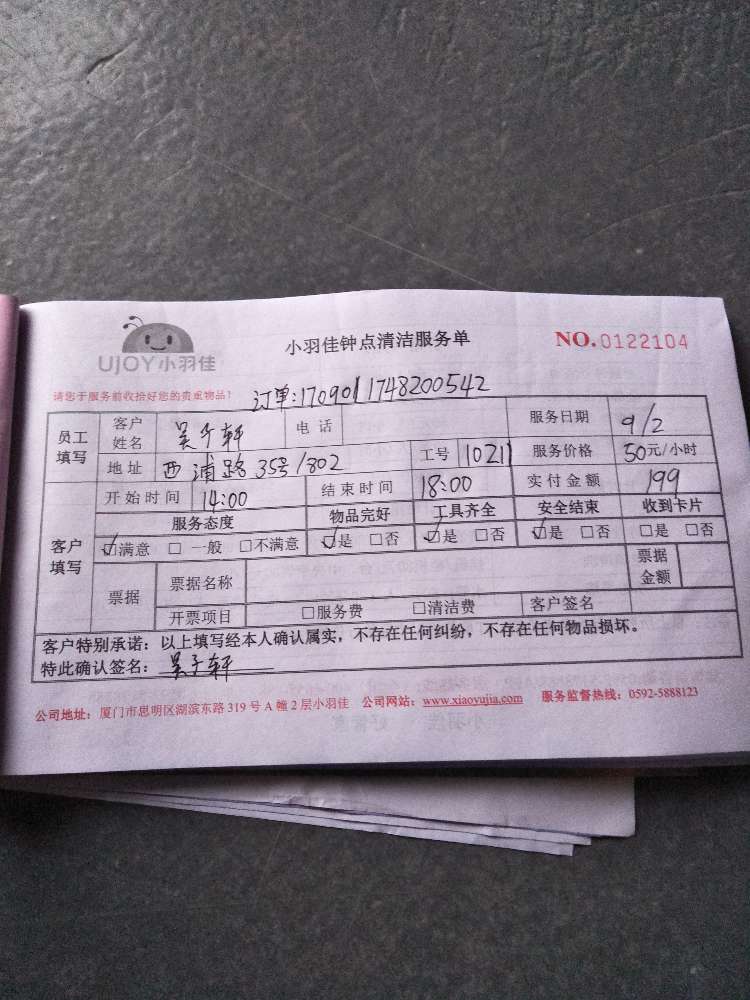 UJOY小羽佳
小羽佳钟点清洁服务单
NO.0122104
请您于服务前收拾好您的贵重物品!
订单:1709011748200542
员工填写 客户姓名 吴子轩 电话 服务日期 9/2
地址 西浦路35号/802 工号 10211 服务价格 50元/小时
客户填写 开始时间 14:00 结束时间 18:00 实付金额 199
服务态度 物品完好 工具齐全 安全结束 收到卡片
☑满意 □一般 □不满意 ☑是 □否 ☑是 □否 ☑是 □否 □是 □否
票据 票据名称 票据金额
开票项目 □服务费 □清洁费 客户签名
客户特别承诺:以上填写经本人确认属实,不存在任何纠纷,不存在任何物品损坏。
特此确认签名:吴子轩
公司地址:厦门市思明区湖滨东路319号A幢2层小羽佳 公司网站:www.xiaoyujia.com 服务监督热线:0592-5888123